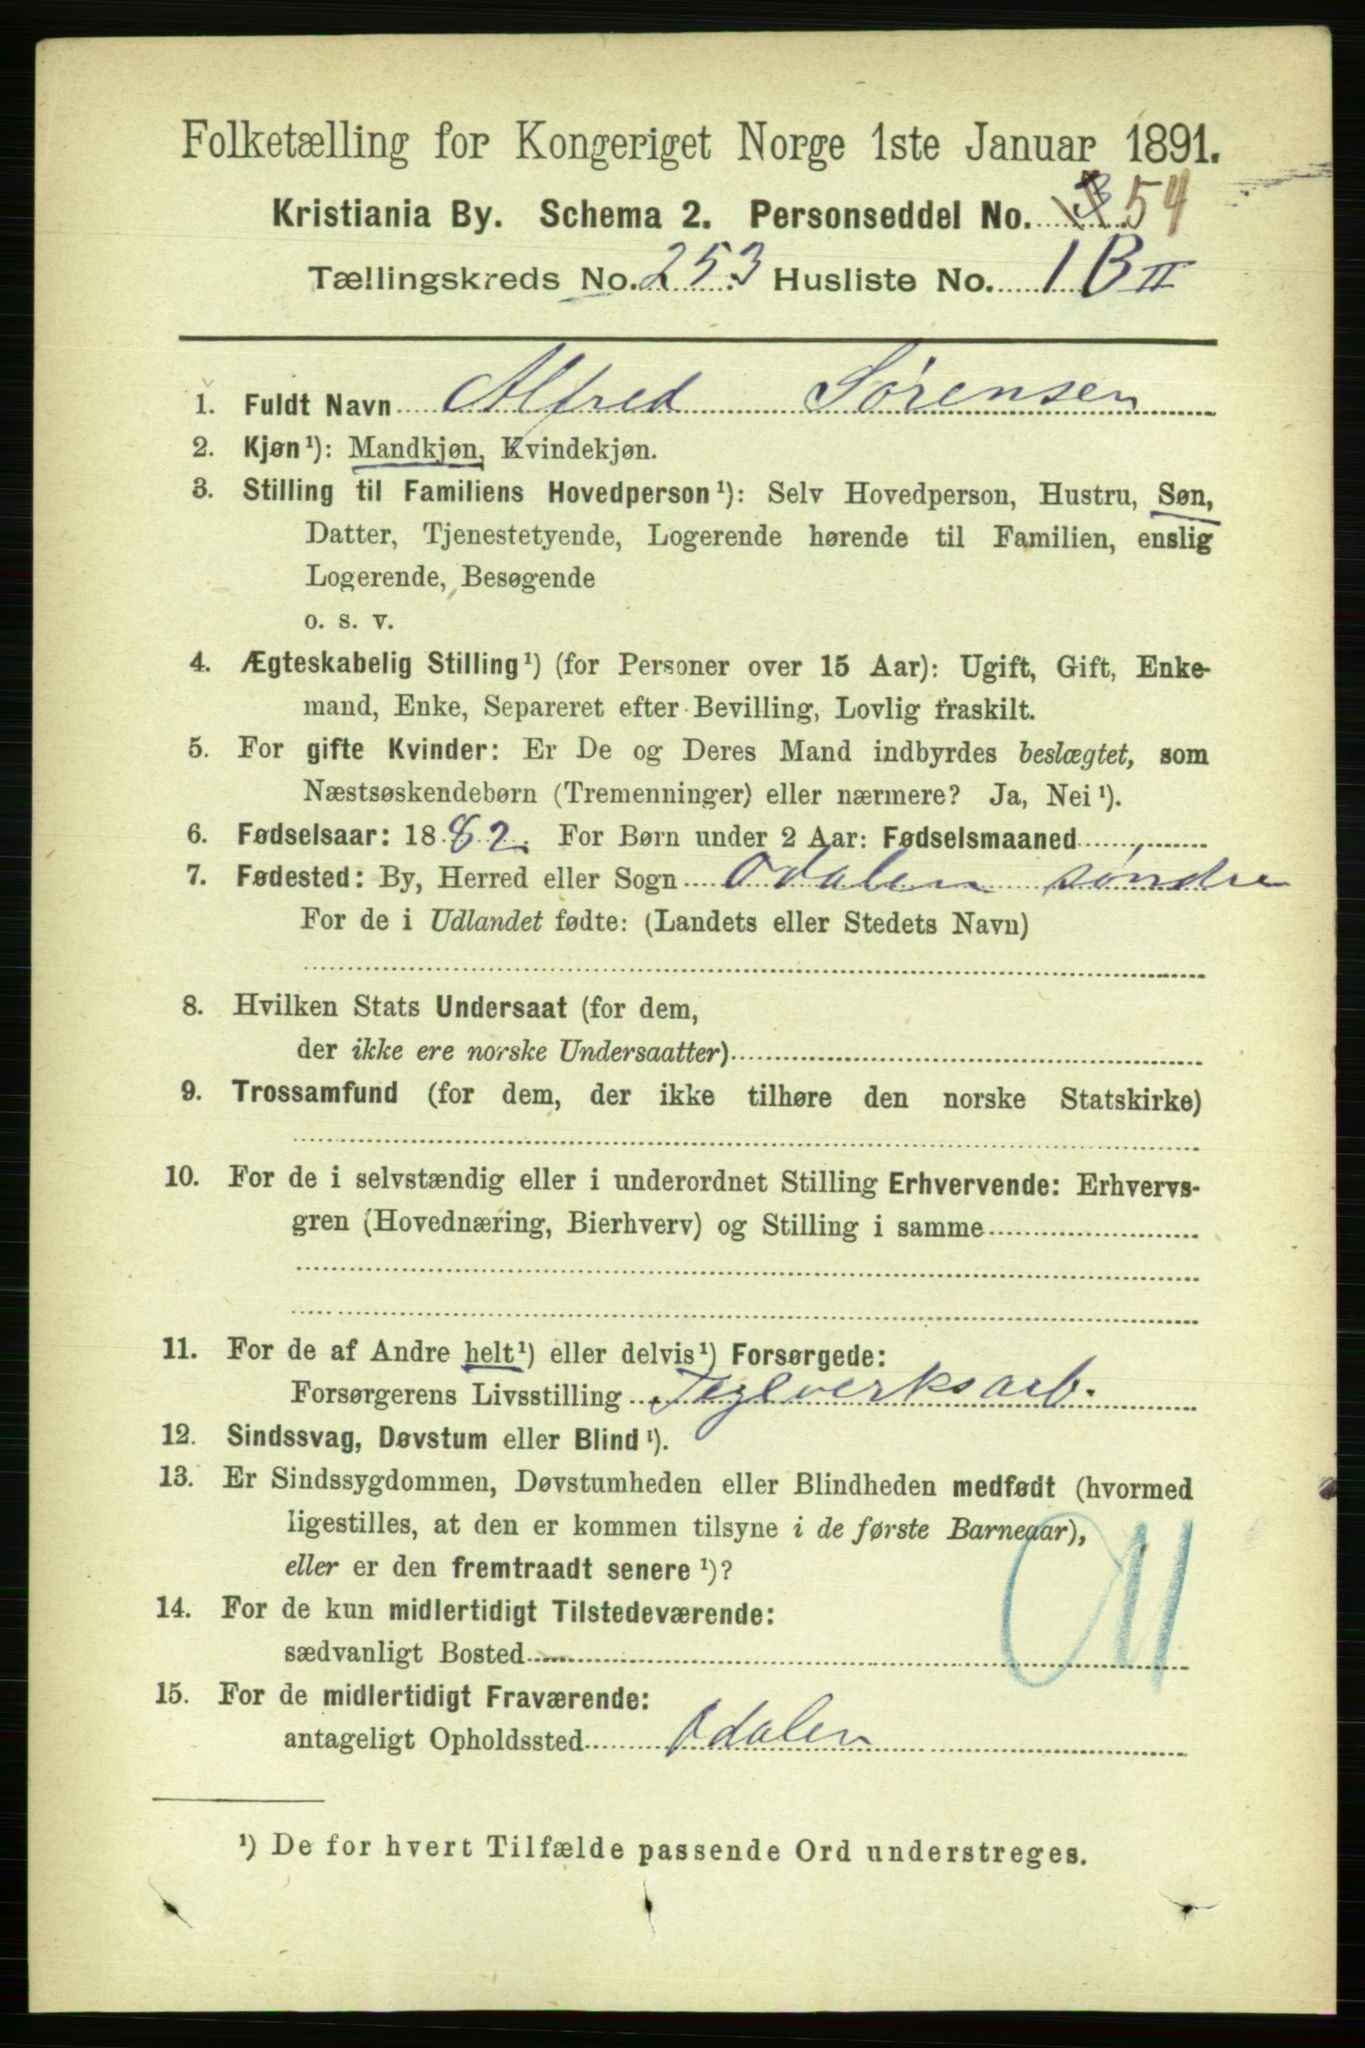 Folketælling for Kongeriget Norge 1ste Januar 1891.
Kristiania By. Schema 2. Personseddel No. 54
Tællingskreds No. 253 Husliste No. 1 B II
1. Fuldt Navn Alfred Sørensen
2. Kjøn¹): Mandkjøn, Kvindekjøn.
3. Stilling til Familiens Hovedperson¹): Selv Hovedperson, Hustru, Søn,
Datter, Tjenestetyende, Logerende hørende til Familien, enslig
Logerende, Besøgende
o. s. v.
4. Ægteskabelig Stilling¹) (for Personer over 15 Aar): Ugift, Gift, Enke-
mand, Enke, Separeret efter Bevilling, Lovlig fraskilt.
5. For gifte Kvinder: Er De og Deres Mand indbyrdes beslægtet, som
Næstsøskendebørn (Tremenninger) eller nærmere? Ja, Nei¹).
6. Fødselsaar: 1882. For Børn under 2 Aar: Fødselsmaaned
7. Fødested: By, Herred eller Sogn Odalen søndre
For de i Udlandet fødte: (Landets eller Stedets Navn)
8. Hvilken Stats Undersaat (for dem,
der ikke ere norske Undersaatter)
9. Trossamfund (for dem, der ikke tilhøre den norske Statskirke)
10. For de i selvstændig eller i underordnet Stilling Erhvervende: Erhvervs-
gren (Hovednæring, Bierhverv) og Stilling i samme
11. For de af Andre helt¹) eller delvis¹) Forsørgede:
Forsørgerens Livsstilling Teglverksarb.
12. Sindssvag, Døvstum eller Blind¹).
13. Er Sindssygdommen, Døvstumheden eller Blindheden medfødt (hvormed
ligestilles, at den er kommen tilsyne i de første Barneaar),
eller er den fremtraadt senere¹)?
14. For de kun midlertidigt Tilstedeværende:
sædvanligt Bosted
15. For de midlertidigt Fraværende:
antageligt Opholdssted Odalen
¹) De for hvert Tilfælde passende Ord understreges.